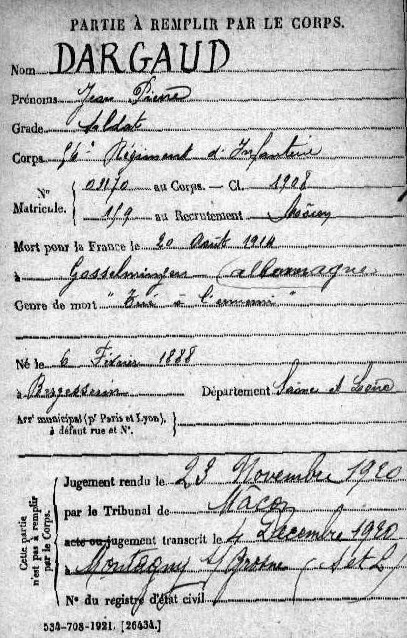 PARTIE À REMPLIR PAR LE CORPS.
Nom DARGAUD
Prénoms Jean Pierre
Grade Soldat
Corps 56e Régiment d'Infanterie
N° Matricule. 01170 au Corps. — Cl. 1908
159 au Recrutement Mâcon
Mort pour la France le 20 Août 1914
à Gosselmingen (allemagne
Genre de mort "Tué à l'ennemi"
Né le 6 Février 1888
à Bergesserin Département Saône et Loire
Arrt municipal (pr Paris et Lyon), à défaut rue et N°.
Cette partie n'est pas à remplir par le Corps.
Jugement rendu le 23 Novembre 1920
par le Tribunal de Mâcon
acte ou jugement transcrit le 4 Décembre 1920
à Montagny s/Grosne (S et L)
N° du registre d'état civil
534-708-1921. [26434.]